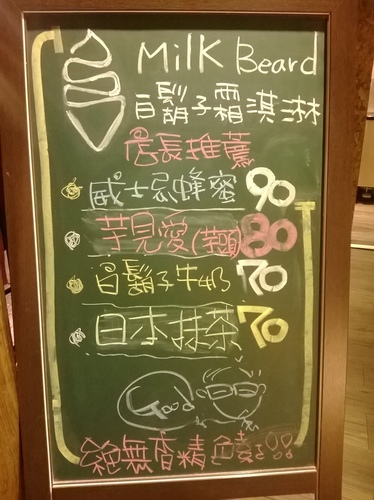 Milk Beard
白鬍子霜淇淋
店長推薦
威士忌蜂蜜 90
芋見愛(芋頭) 80
白鬍子牛奶 70
日本抹茶 70
Good
絕無香精色素!!